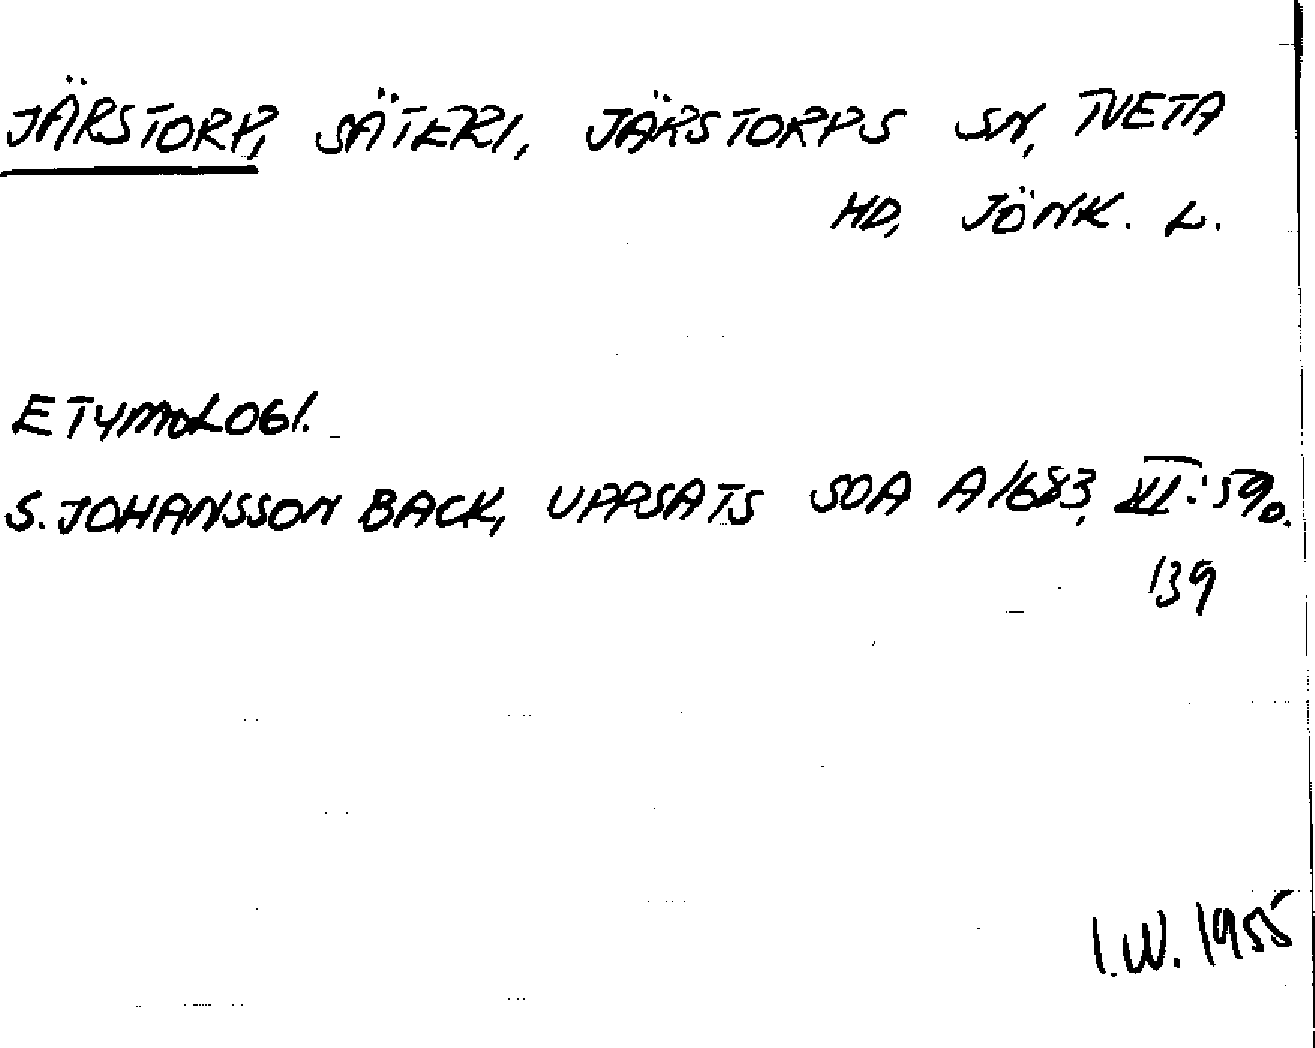 JÄRSTORP, SÄTERI, JÄRSTORPS SN, TVETA
HD, JÖNK. L.
ETYMOLOGI.
S. JOHANSSON BACK, UPPSATS SOA A1683,
139
I.W. 1955